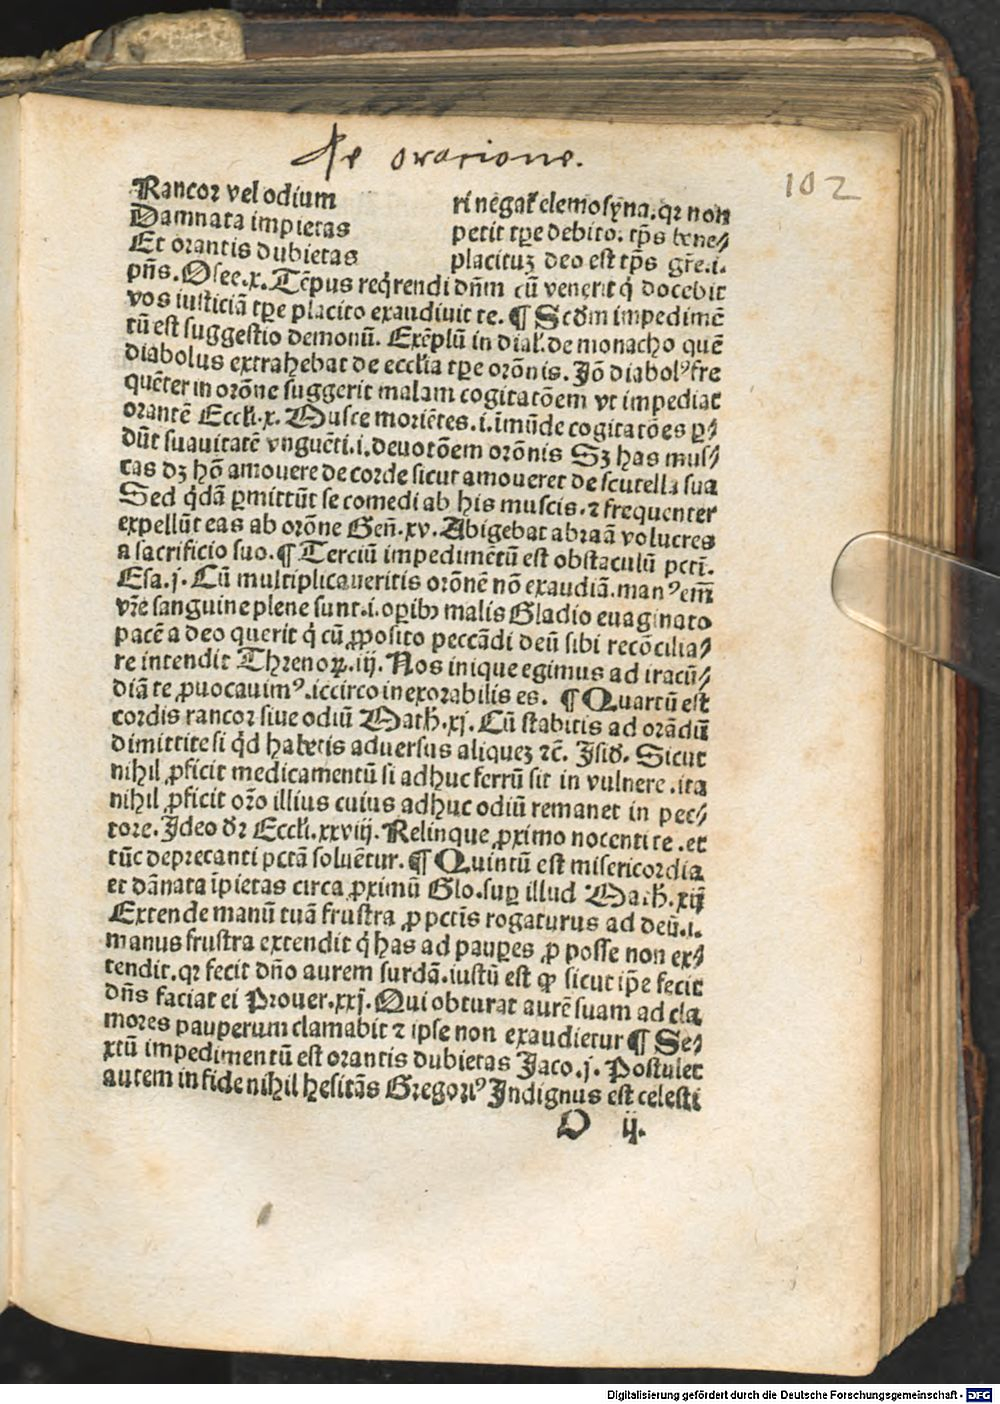 de oracione.
102
Rancor vel odium
Damnata impietas
Et orantis dubietas
ri negat̄ elemosyna. qꝛ non
petit tꝑe debito. tp̄s bene⸗
placituꝫ deo est tp̄s gr̄e .i.
pn̄s. Osee .x. Tēpus req̇rendi dn̄m cū venerit q̇ docebit
vos iusticiā tꝑe placito exaudiuit te. ¶ Scd̄m impedimē
tū est suggestio demonū. Exēplū in dial̄. de monacho quē
diabolus extrahebat de eccl̄ia tꝑe orōnis. Jō diabolꝰ fre
quēter in orōne suggerit malam cogitatōem vt impediat
orantē Eccl̄i .x. Musce moriētes .i. īmūde cogitatōes ꝑ⸗
dūt suauitatē vnguēti .i. deuotōem orōnis Sꝫ has mus⸗
cas dꝫ hō amouere de corde sicut amoueret de scutella sua
Sed q̇dā ꝑmittūt se comedi ab his muscis. ⁊ frequenter
expellūt eas ab orōne Gen̄ .xv. Abigebat abraā volucres
a sacrificio suo. ¶ Terciū impedimētū est obstaculū pctī.
Esa .j. Cū multiplicaueritis orōnē nō exaudiā. manꝰ em̄
vr̄e sanguine plene sunt .i. oꝑibꝫ malis Gladio euaginato
pacē a deo querit q̇ cū ꝓposito peccādi deū sibi recōcilia⸗
re intendit Threnoꝝ .iij. Nos inique egimus ad iracū⸗
diā te ꝓuocauimꝰ. iccirco inexorabilis es. ¶ Quartū est
cordis rancor siue odiū Math̄ .xj. Cū stabitis ad orādū
dimittite si q̇d habetis aduersus aliqueꝫ ⁊c̄. Jsid̄. Sicut
nihil ꝓficit medicamentū si adhuc ferrū sit in vulnere. ita
nihil ꝓficit or̄o illius cuius adhuc odiū remanet in pec⸗
tore. Jdeo dr̄ Eccl̄i .xxviij. Relinque ꝓximo nocenti te. et
tūc deprecanti pctā soluētur. ¶ Quintū est misericordia
et dānata īpietas circa ꝓximū Glo. suꝑ illud Math̄ .xij
Extende manū tuā frustra ꝓ pctīs rogaturus ad deū .i.
manus frustra extendit q̇ has ad pauꝑes ꝓ posse non ex⸗
tendit. qꝛ fecit dn̄o aurem surdā. iustū est ꝙ sicut ip̄e fecit
dn̄s faciat ei Prouer .xxj. Qui obturat aurē suam ad cla
mores pauperum clamabit ⁊ ipse non exaudietur ¶ Se⸗
xtū impedimentū est orantis dubietas Jaco .j. Postulet
autem in fide nihil hesitās Gregoriꝰ Jndignus est celesti
O ij.
Digitalisierung gefördert durch die Deutsche Forschungsgemeinschaft - DFG